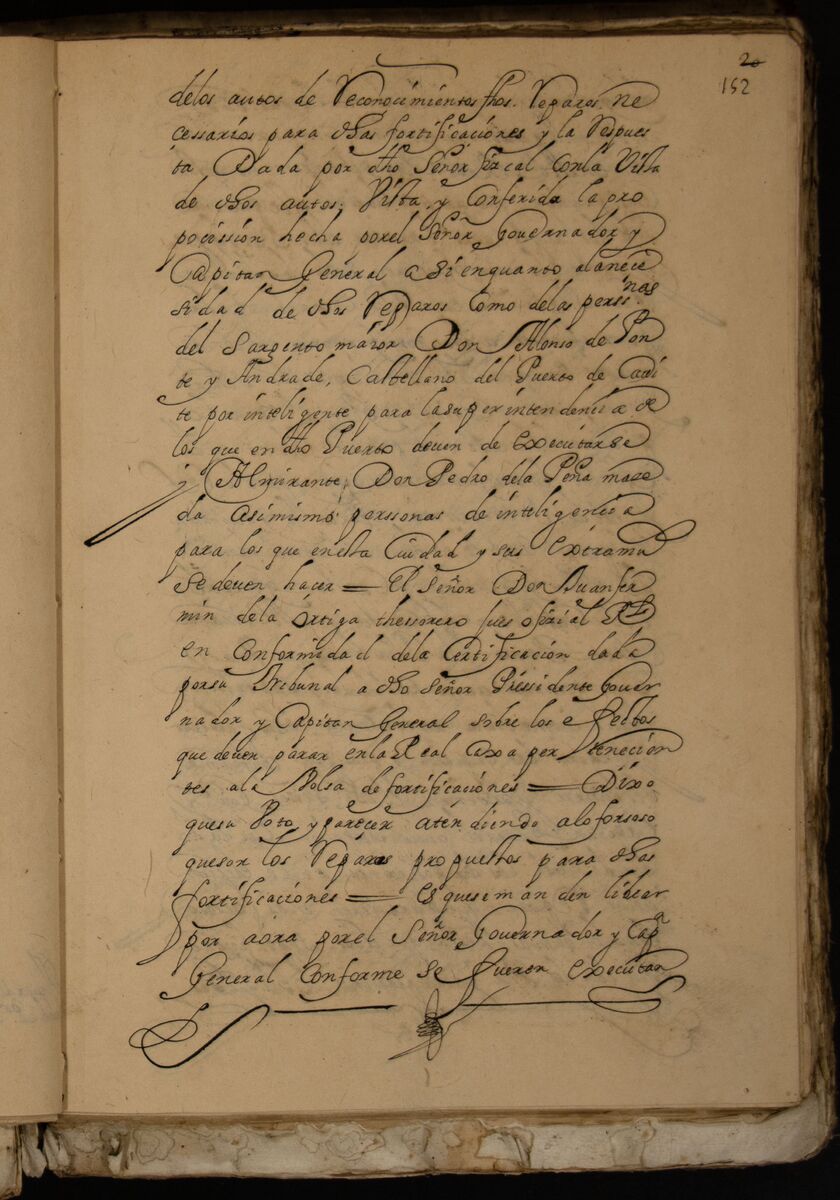 20
152
delos autos de Reconocimientos fhos. Reparos, ne
cessarios para dhas fortificaciones y la Respues
ta Dada por dho Señor fiscal Conla Vista
de dhos autos; Vista, y Conferida la pro
pocission hecha porel Señor Gouernador y
Capitan General asi enquanto alanece
sidad de dhos Reparos Como delas perssonas
del Sargento maior Don Alonso de Pon
te y Andrade, Castellano del Puerto de Caui
te por inteligente para lasuperintendencia de
los que en dho Puerto deuen de executarse
y Almirante, Don Pedro dela Peña maze
da asimismo perssonas de inteligencia
para los que enesta Ciudad y sus extramu
se deuen hacer = El Señor Don Juan fer
min dela Ortiga thessorero jues ofizial Rl
en Conformidad dela Certificacion dada
porsu Tribunal a dho Señor Pressidente Gouer
nador y Capitan General sobre los efectos
que deuen parar enla Real Caxa perteneçien
tes ala Bolsa de fortificaciones = Dixo
quesu Voto y parecer atendiendo alo forsoso
queson los Reparos propuestos para dhas
fortificaciones = es quesemanden librar
por aora porel Señor Gouernador y Capn
General Conforme se fueren executan